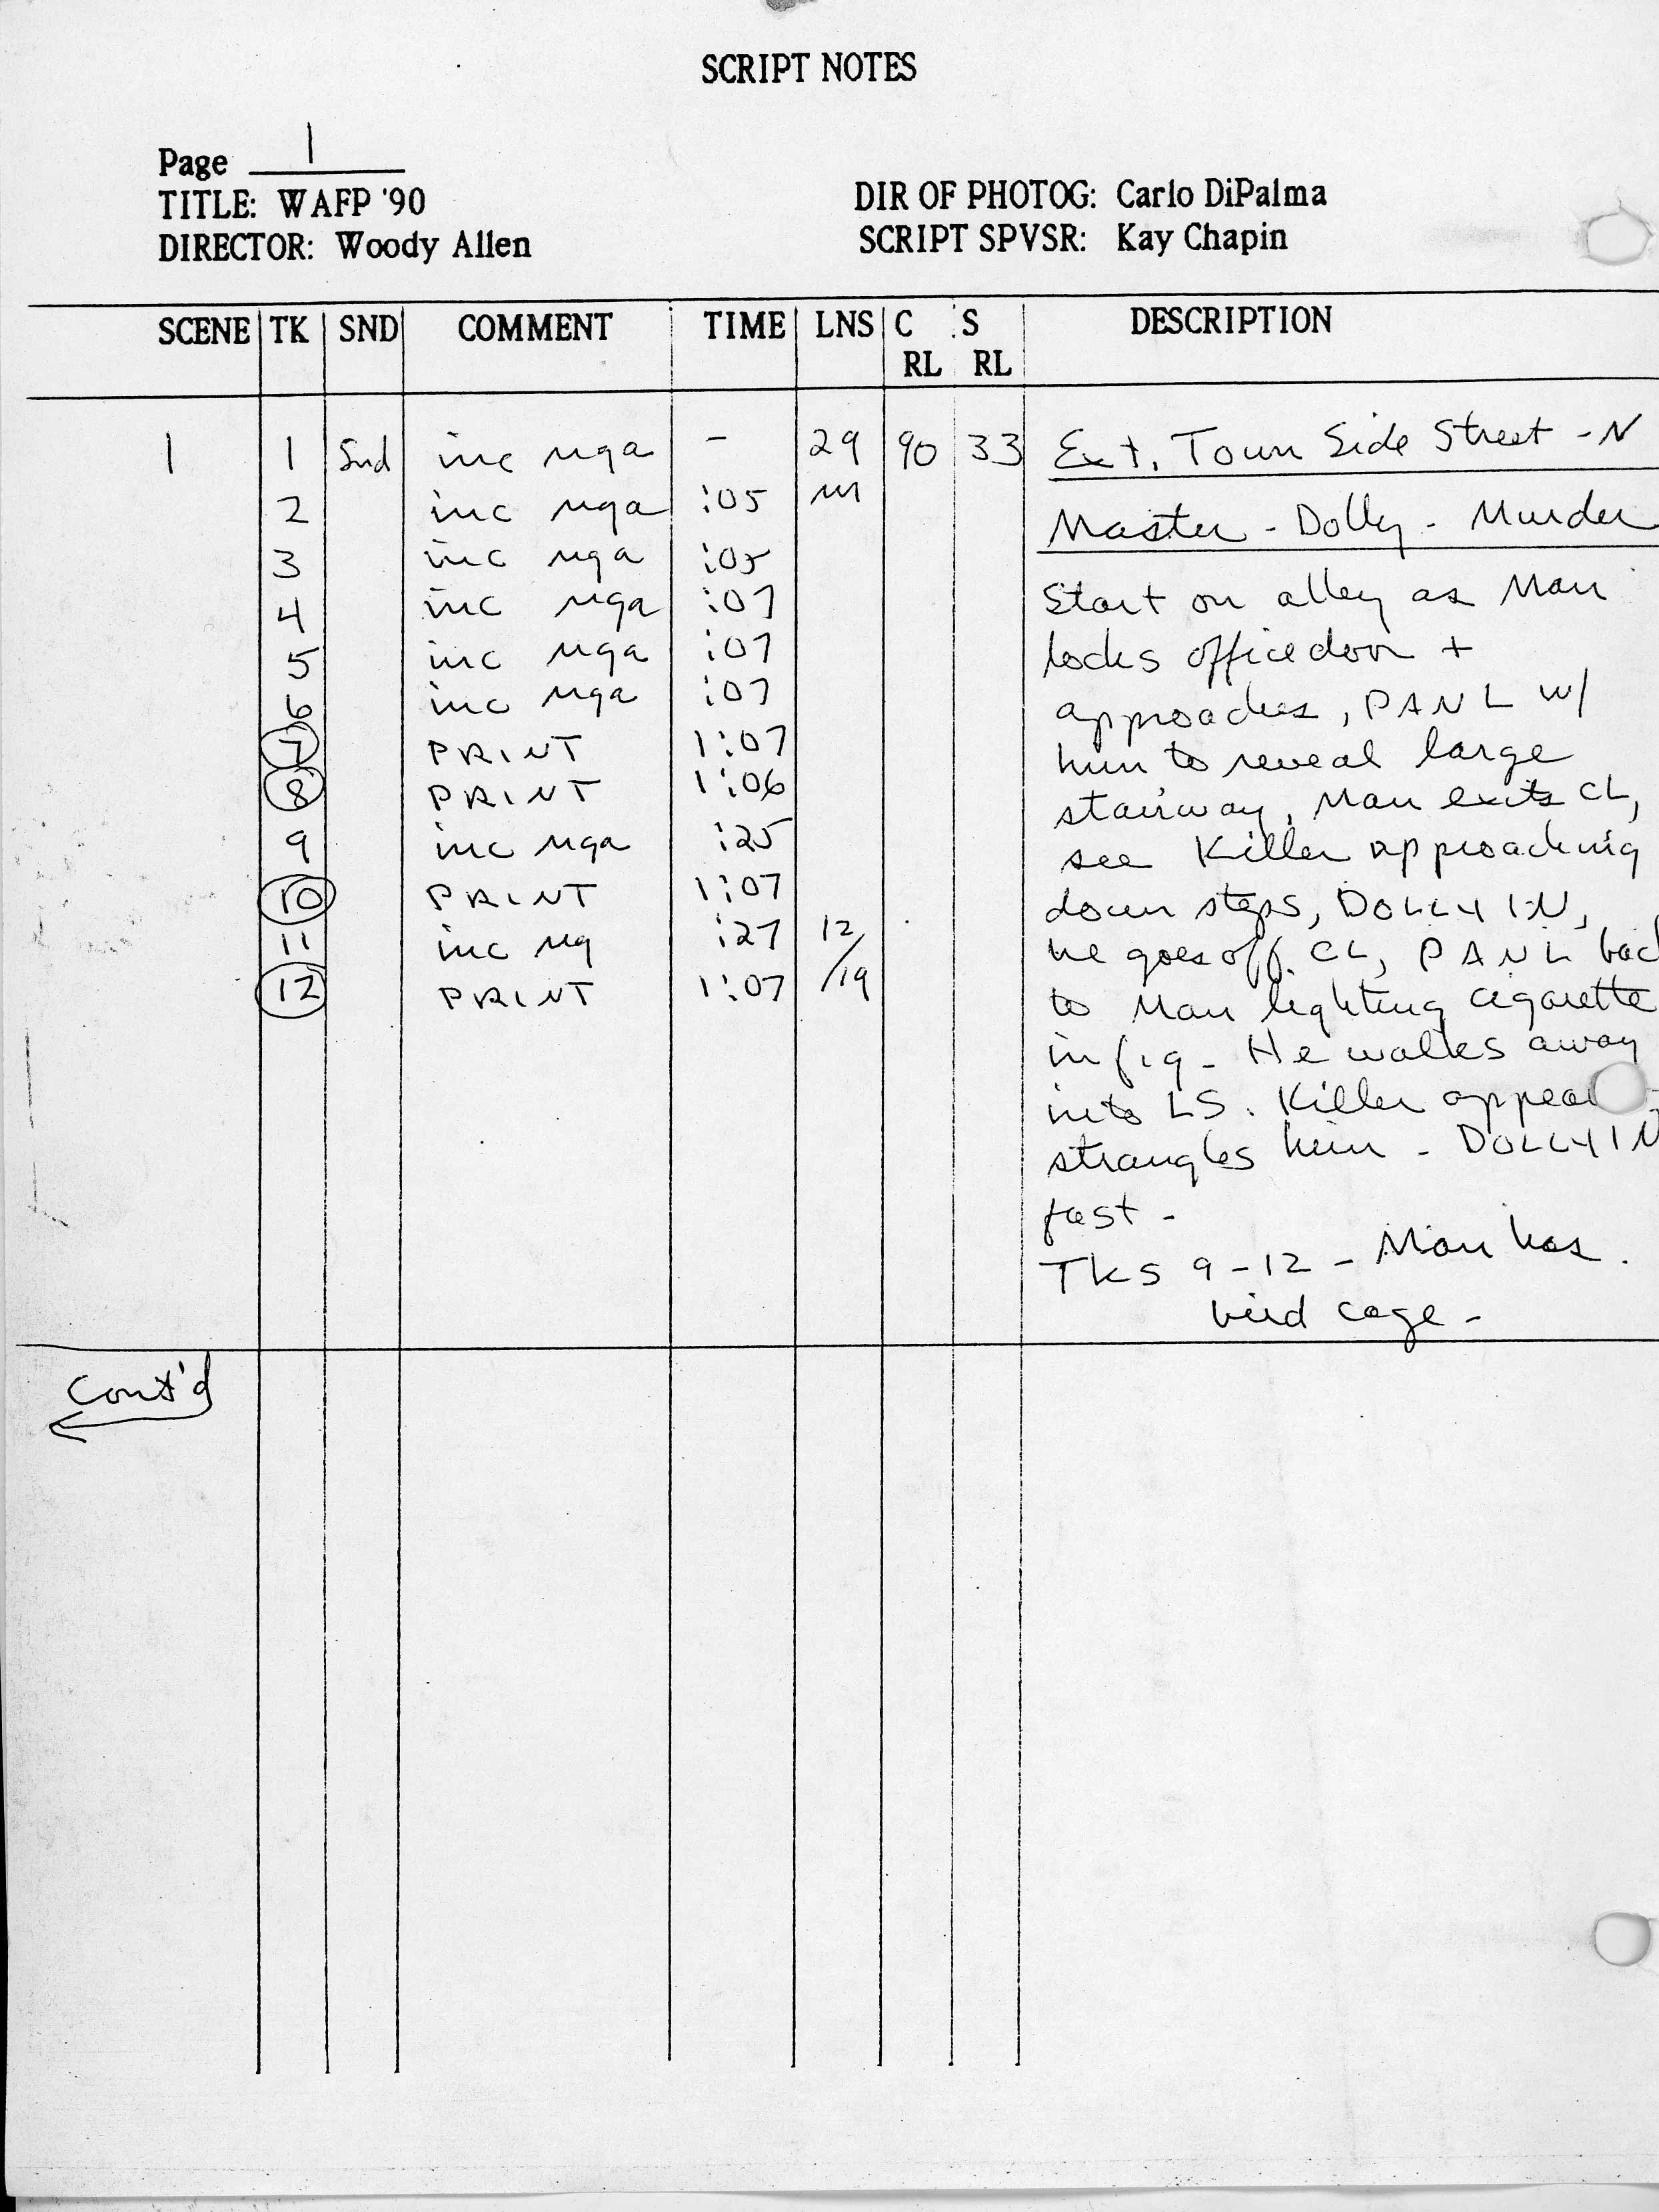 SCRIPT NOTES
Page 1
TITLE: WAFP '90
DIRECTOR: Woody Allen
DIR OF PHOTOG: Carlo DiPalma
SCRIPT SPVSR: Kay Chapin
SCENE TK SND COMMENT TIME LNS C RL S RL DESCRIPTION
1 1 Snd inc nga - 29 90 33
2 inc nga :05 m
3 inc nga :05
4 inc nga :07
5 inc nga :07
6 inc nga :07
7 PRINT 1:07
8 PRINT 1:06
9 inc nga :25
10 PRINT 1:07
11 inc ng :27 12
12 PRINT 1:07 /19
Ext. Town Side Street - N
Master - Dolly - Murder
Start on alley as Man
locks office door +
approaches, PAN L w/
him to reveal large
stairway, Man exits CL,
see Killer approaching
down steps, DOLLY IN,
he goes off CL, PAN L bac
to Man lighting cigarette
in f.g. He walks away
into LS. Killer appea
strangles him - DOLLY IN
fast -
Tks 9-12 - Man has
bird cage -
Cont'd